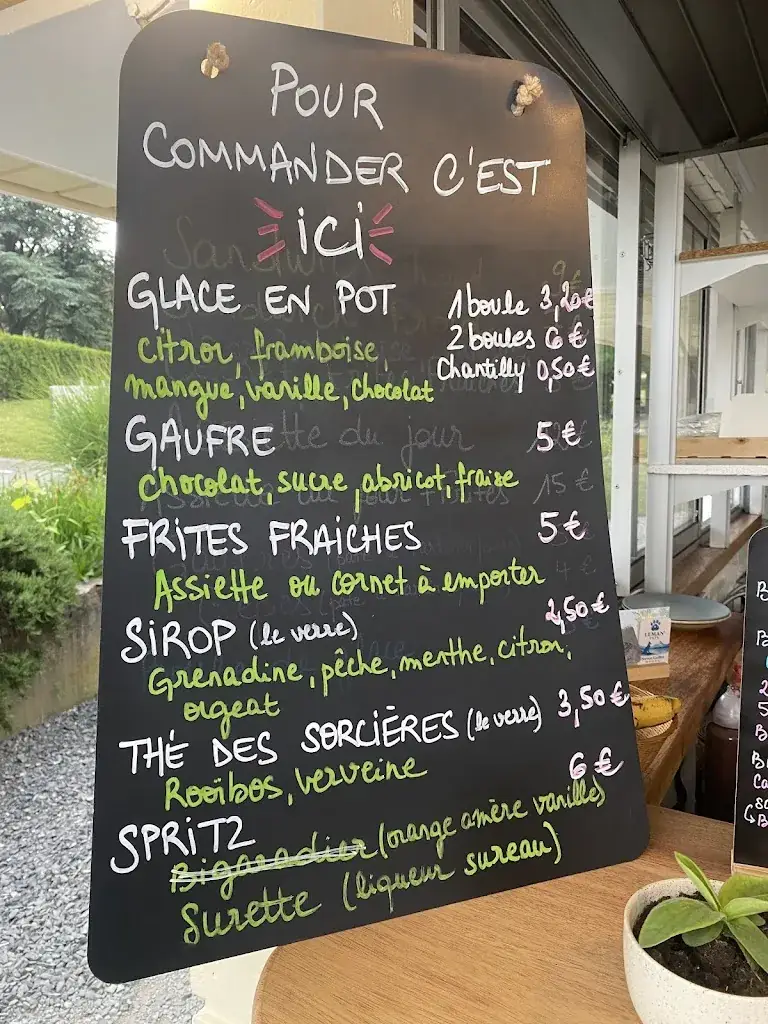 POUR
COMMANDER C'EST
ICI
GLACE EN POT
1 boule 3,20€
2 boules 6€
Chantilly 0,50€
citron, framboise,
mangue, vanille, chocolat
GAUFRE 5€
chocolat, sucre, abricot, fraise
FRITES FRAICHES 5€
Assiette ou cornet à emporter
SIROP (le verre) 2,50€
Grenadine, pêche, menthe, citron,
orgeat
THÉ DES SORCIÈRES (le verre) 3,50€
Rooïbos, verveine
SPRITZ 6€
Bigaradier (orange amère vanille)
Surette (liqueur sureau)
LEMAN